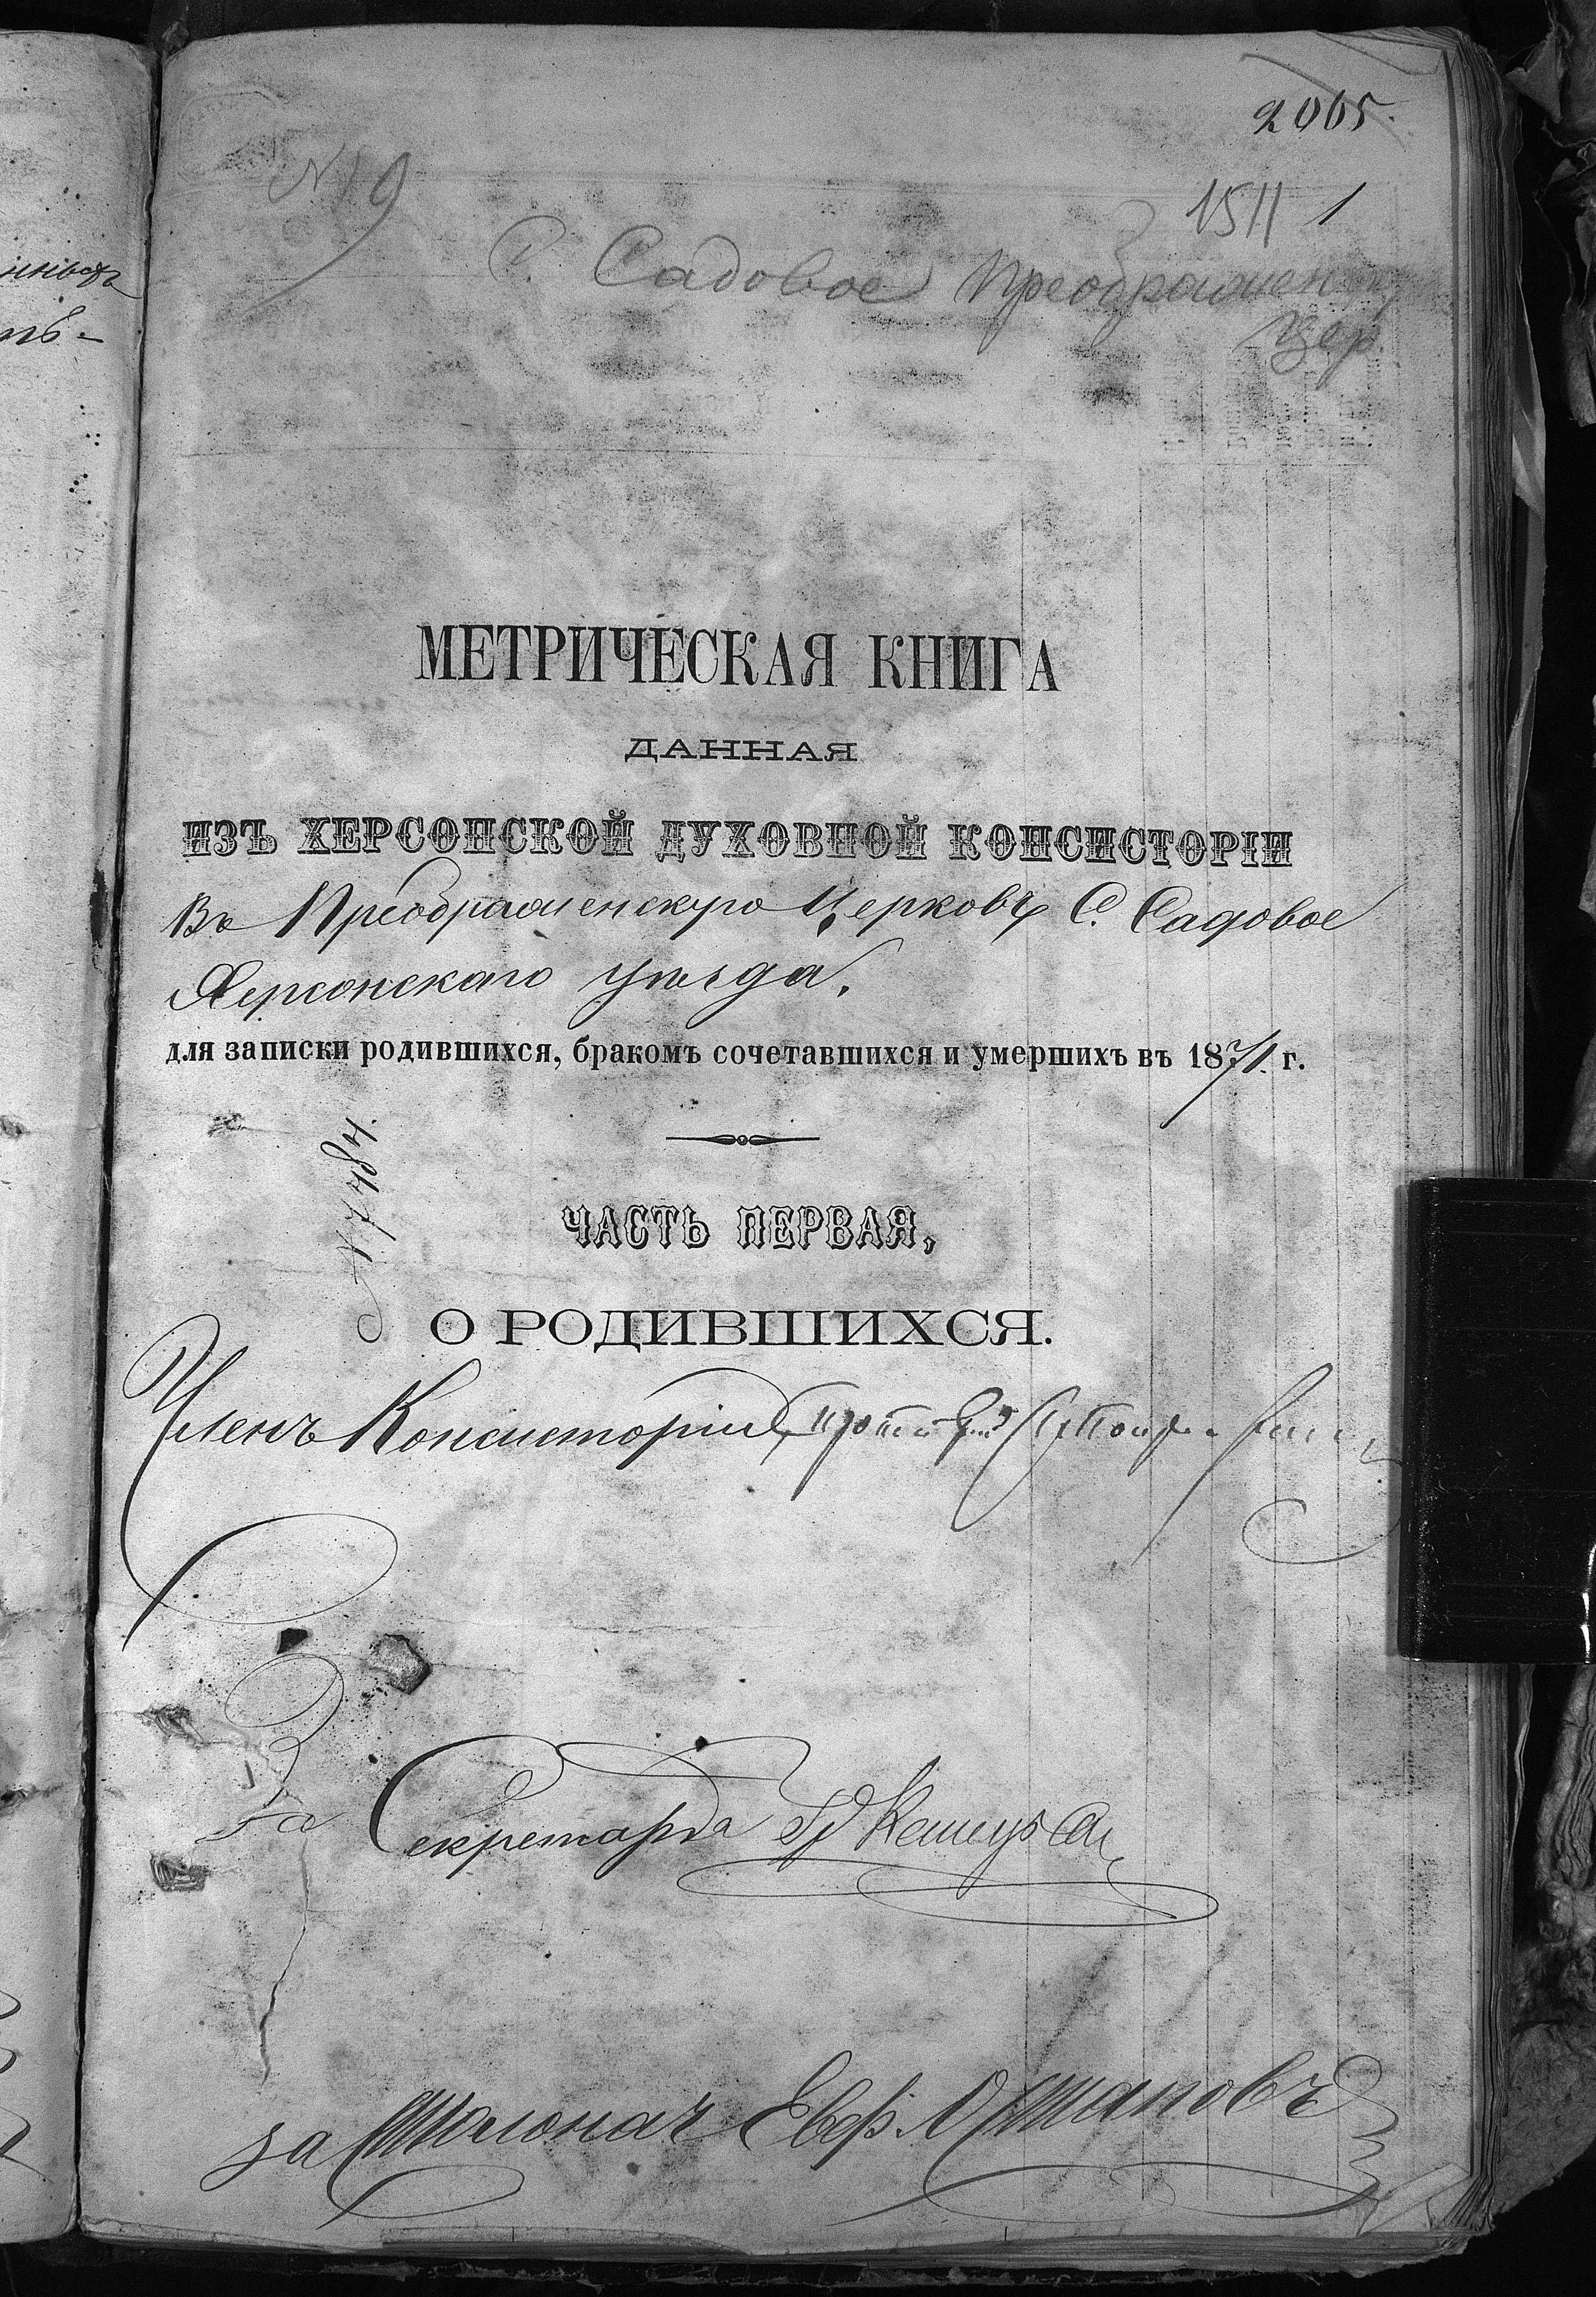 2065.
N 19
1511 1
С. Садовое Преображен
Цер
МЕТРИЧЕСКАЯ КНИГА
ДАННАЯ
ИЗЪ ХЕРСОНСКОЙ ДУХОВНОЙ КОНСИСТОРІИ
Въ Преображенскую Церковь С. Садовое
Херсонскаго уѣзда.
для записки родившихся, бракомъ сочетавшихся и умершихъ въ 1871. г.
ЧАСТЬ ПЕРВАЯ,
О РОДИВШИХСЯ.
Членъ Консисторіи
За Секретаря
за Столонач Евф. Остаповъ